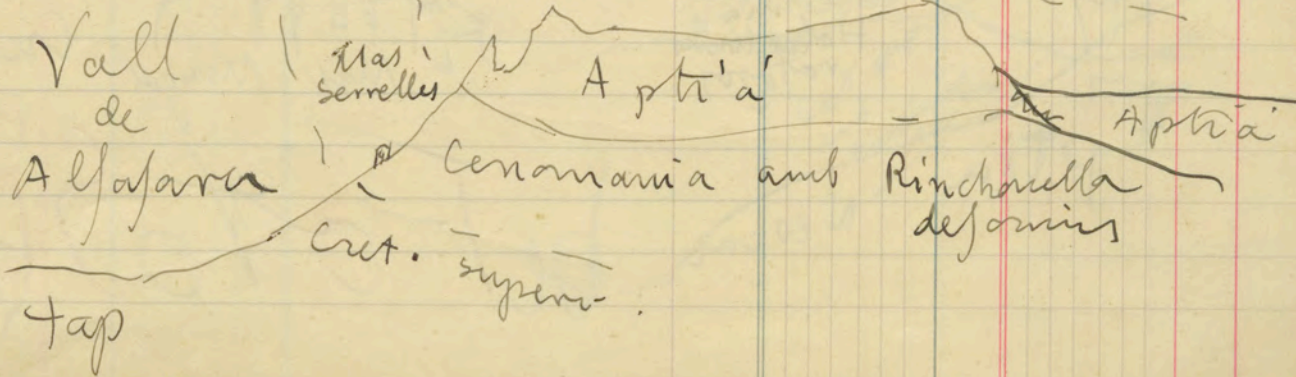 Vall
de
Alfafara
Mas
Serrelles
Aptià
Aptià
Cenomanià amb Rinchonella
deformis
Cret. superi.
tap